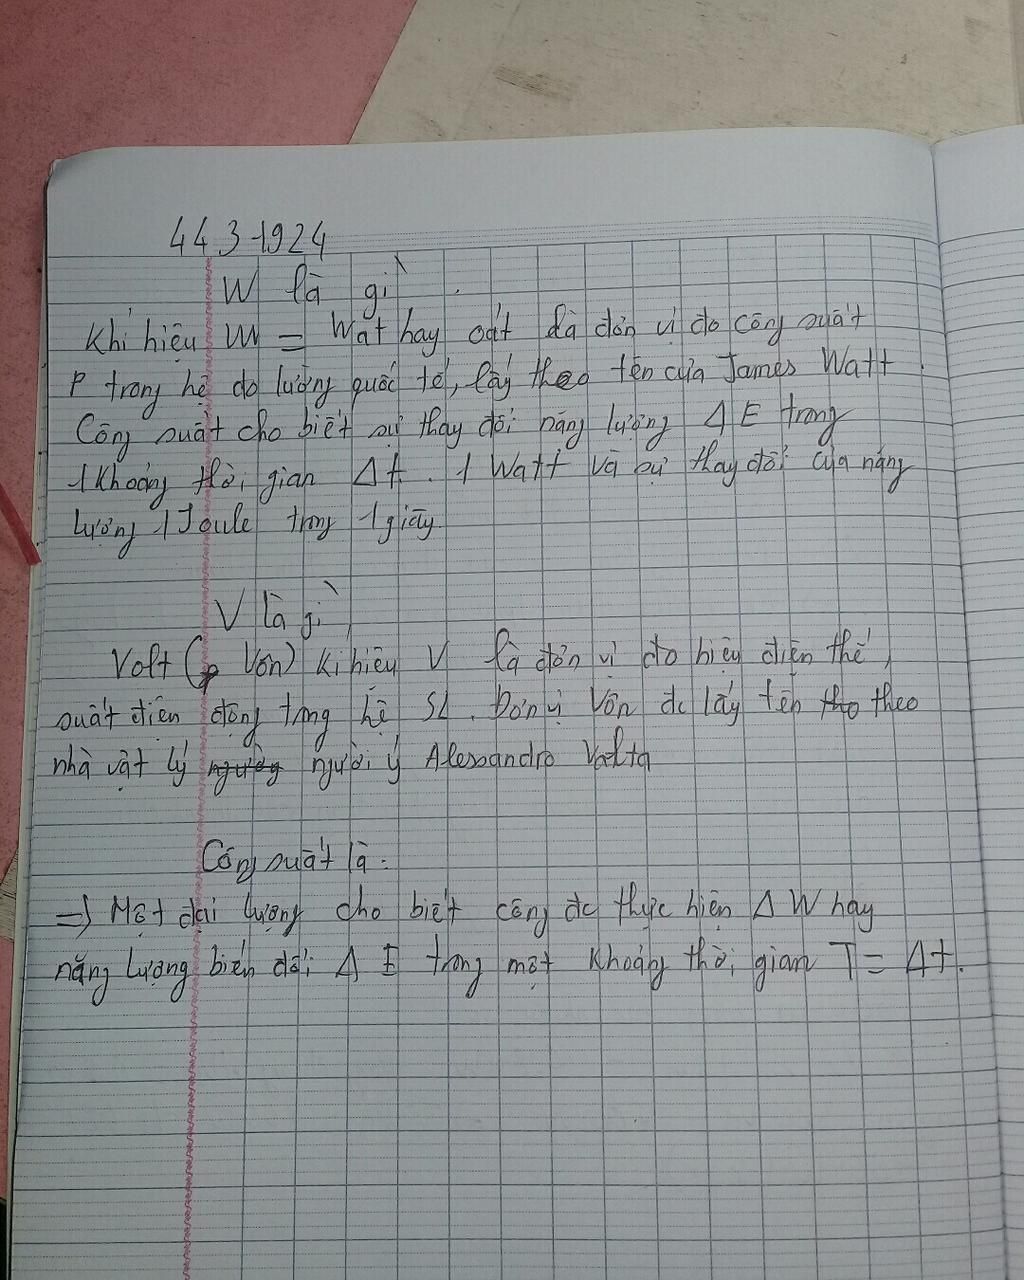 44.3-1924
W là gì
Khí hiệu W = Wat hay oát là đơn vị đo công suất
P trong hệ đo lường quốc tế, lấy theo tên của James Watt.
Công suất cho biết sự thay đổi năng lượng Δ E trong
1 khoảng thời gian Δt. 1 Watt và sự thay đổi của năng
lượng 1 Joule trong 1 giây
V là gì
Volt ( Vôn) kí hiệu V là đơn vị đo hiệu điện thế,
suất điện động trong hệ SI. Đơn vị Vôn đc lấy tên theo
nhà vật lý người ý Alessandro Valta
Công suất là:
=> Một đại lượng cho biết công đc thực hiện Δ W hay
năng lượng biến đổi Δ E trong một khoảng thời gian T = Δt.